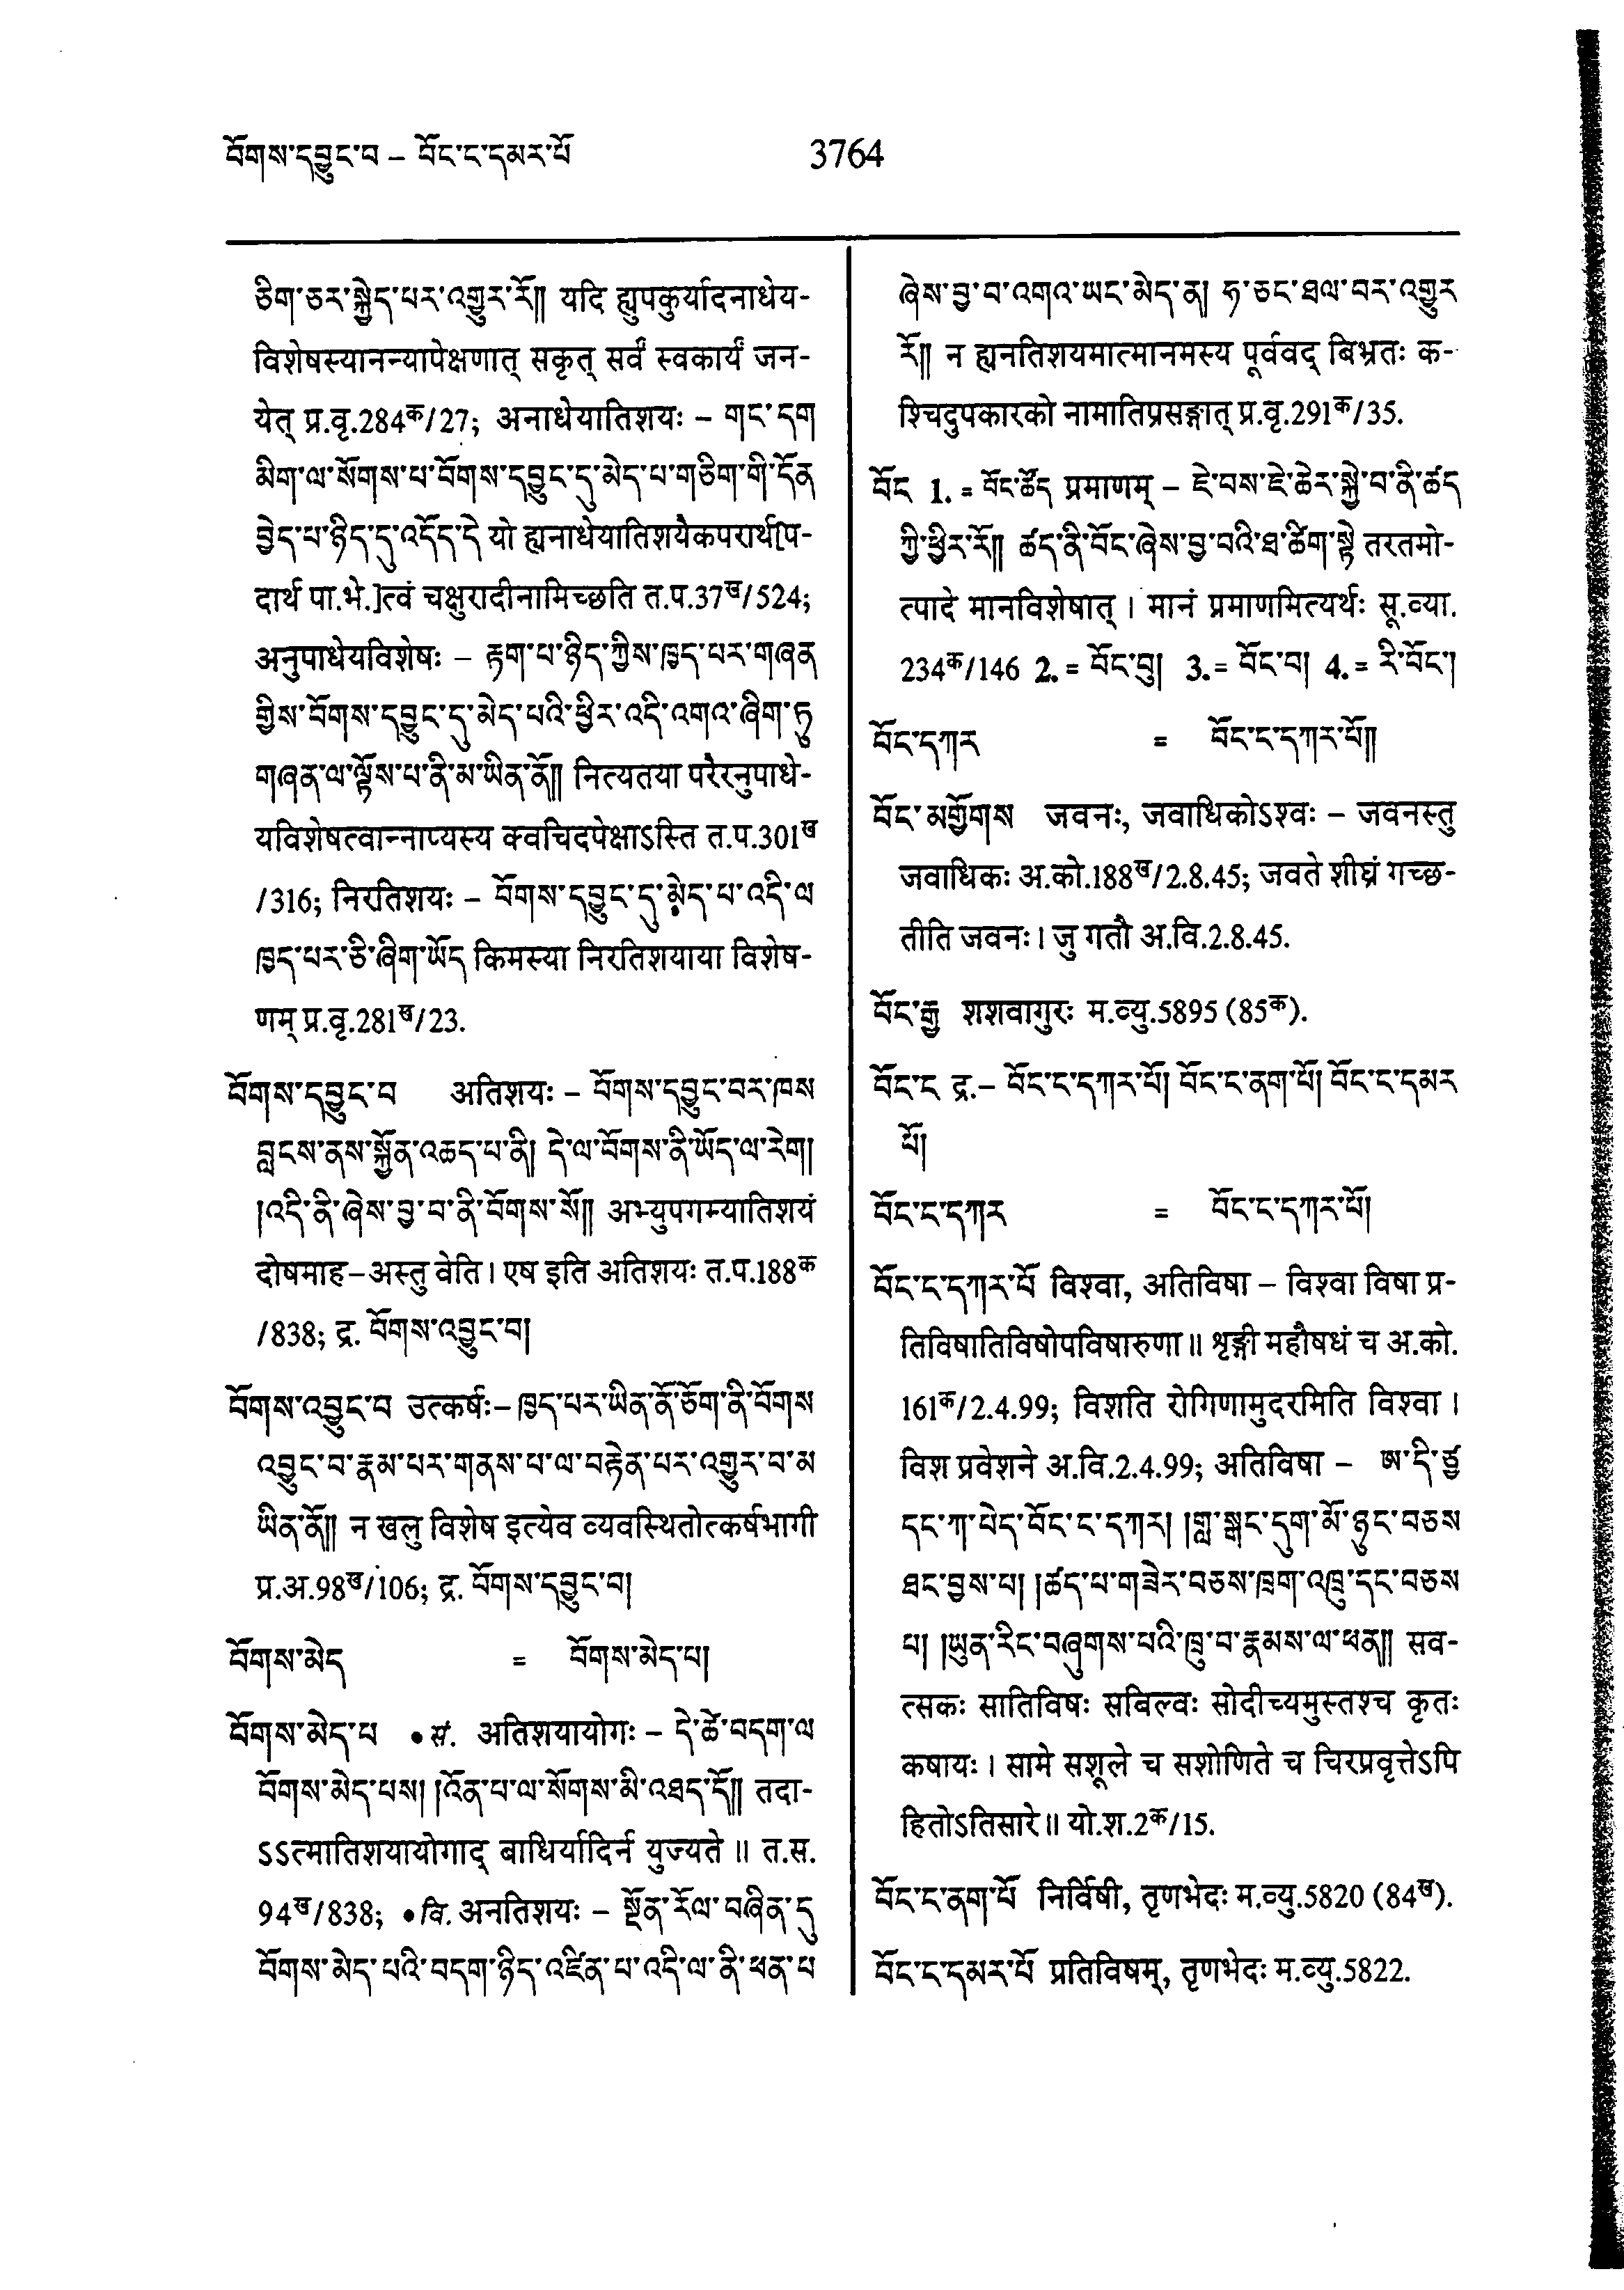 བོགས་དབྱུང་བ – བོང་ང་དམར་པོ
3764
ཅིག་ཅར་སྐྱེད་པར་འགྱུར་རོ།། यदि ह्युपकुर्यादनाधेय-
विशेषस्यानन्यापेक्षणात् सकृत् सर्वं स्वकार्यं जन-
येत् प्र.वृ.284क/27; अनाधेयातिशयः – གང་དག
མིག་ལ་སོགས་པ་བོགས་དབྱུང་དུ་མེད་པ་གཅིག་གི་དོན
བྱེད་པ་ཉིད་དུ་འདོད་དེ यो ह्यनाधेयातिशयैकपरार्थ[प-
दार्थ पा.भे.]त्वं चक्षुरादीनामिच्छति त.प.37ख/524;
अनुपाधेयविशेषः – རྟག་པ་ཉིད་ཀྱིས་ཁྱད་པར་གཞན
གྱིས་བོགས་དབྱུང་དུ་མེད་པའི་ཕྱིར་འདི་འགའ་ཞིག་ཏུ
གཞན་ལ་ལྟོས་པ་ནི་མ་ཡིན་ནོ།། नित्यतया परैरनुपाधे-
यविशेषत्वान्नाप्यस्य क्वचिदपेक्षाऽस्ति त.प.301ख
/316; निरतिशयः – བོགས་དབྱུང་དུ་མེད་པ་འདི་ལ
ཁྱད་པར་ཅི་ཞིག་ཡོད किमस्या निरतिशयाया विशेष-
णम् प्र.वृ.281ख/23.
བོགས་དབྱུང་བ अतिशयः – བོགས་དབྱུང་བར་ཁས
བླངས་ནས་སྐྱོན་འཆད་པ་ནི། དེ་ལ་བོགས་ནི་ཡོད་ལ་རེག།
།འདི་ནི་ཞེས་བྱ་བ་ནི་བོགས་སོ།། अभ्युपगम्यातिशयं
दोषमाह–अस्तु वेति। एष इति अतिशयः त.प.188क
/838; द्र. བོགས་འབྱུང་བ།
བོགས་འབྱུང་བ उत्कर्षः– ཁྱད་པར་ཡིན་ནོ་ཅོག་ནི་བོགས
འབྱུང་བ་རྣམ་པར་གནས་པ་ལ་བརྟེན་པར་འགྱུར་བ་མ
ཡིན་ནོ།། न खलु विशेष इत्येव व्यवस्थितोत्कर्षभागी
प्र.अ.98ख/106; द्र. བོགས་དབྱུང་བ།
བོགས་མེད = བོགས་མེད་པ།
བོགས་མེད་པ • सं. अतिशयायोगः – དེ་ཚེ་བདག་ལ
བོགས་མེད་པས། །འོན་པ་ལ་སོགས་མི་འཐད་དོ།། तदा-
ऽऽत्मातिशयायोगाद् बाधिर्यादिर्न युज्यते॥ त.स.
94ख/838; • वि. अनतिशयः – སྔོན་རོལ་བཞིན་དུ
བོགས་མེད་པའི་བདག་ཉིད་འཛིན་པ་འདི་ལ་ནི་ཕན་པ
ཞེས་བྱ་བ་འགའ་ཡང་མེད་ན། ཧ་ཅང་ཐལ་བར་འགྱུར
རོ།། न ह्यनतिशयमात्मानमस्य पूर्ववद् बिभ्रतः क-
श्चिदुपकारको नामातिप्रसङ्गात् प्र.वृ.291क/35.
བོང 1. = བོང་ཚོད प्रमाणम् – ཇེ་བས་ཇེ་ཆེར་སྐྱེ་བ་ནི་ཚད
ཀྱི་ཕྱིར་རོ།། ཚད་ནི་བོང་ཞེས་བྱ་བའི་ཐ་ཚིག་སྟེ तरतमो-
त्पादे मानविशेषात्। मानं प्रमाणमित्यर्थः सू.व्या.
234क/146 2. = བོང་བུ། 3. = བོང་བ། 4. = རི་བོང་།
བོང་དཀར = བོང་ང་དཀར་པོ།།
བོང་མགྱོགས जवनः, जवाधिकोऽश्वः – जवनस्तु
जवाधिकः अ.को.188ख/2.8.45; जवते शीघ्रं गच्छ-
तीति जवनः। जु गतौ अ.वि.2.8.45.
བོང་རྒྱ शशवागुरः म.व्यु.5895 (85क).
བོང་ང द्र.– བོང་ང་དཀར་པོ། བོང་ང་ནག་པོ། བོང་ང་དམར
པོ།
བོང་ང་དཀར = བོང་ང་དཀར་པོ།
བོང་ང་དཀར་པོ विश्वा, अतिविषा – विश्वा विषा प्र-
तिविषातिविषोपविषारुणा॥ शृङ्गी महौषधं च अ.को.
161क/2.4.99; विशति रोगिणामुदरमिति विश्वा।
विश प्रवेशने अ.वि.2.4.99; अतिविषा – ཨ་དི་ཙྪ
དང་ཀ་པེད་བོང་ང་དཀར། །གླ་སྒང་དུག་མོ་ཉུང་བཅས
ཐང་བྱས་པ། །ཚད་པ་གཟེར་བཅས་ཁྲག་འཁྲུ་དང་བཅས
པ། །ཡུན་རིང་བཞུགས་པའི་ཁྲུ་བ་རྣམས་ལ་ཕན།། सव-
त्सकः सातिविषः सबिल्वः सोदीच्यमुस्तश्च कृतः
कषायः। सामे सशूले च सशोणिते च चिरप्रवृत्तेऽपि
हितोऽतिसारे॥ यो.श.2क/15.
བོང་ང་ནག་པོ निर्विषी, तृणभेदः म.व्यु.5820 (84ख).
བོང་ང་དམར་པོ प्रतिविषम्, तृणभेदः म.व्यु.5822.